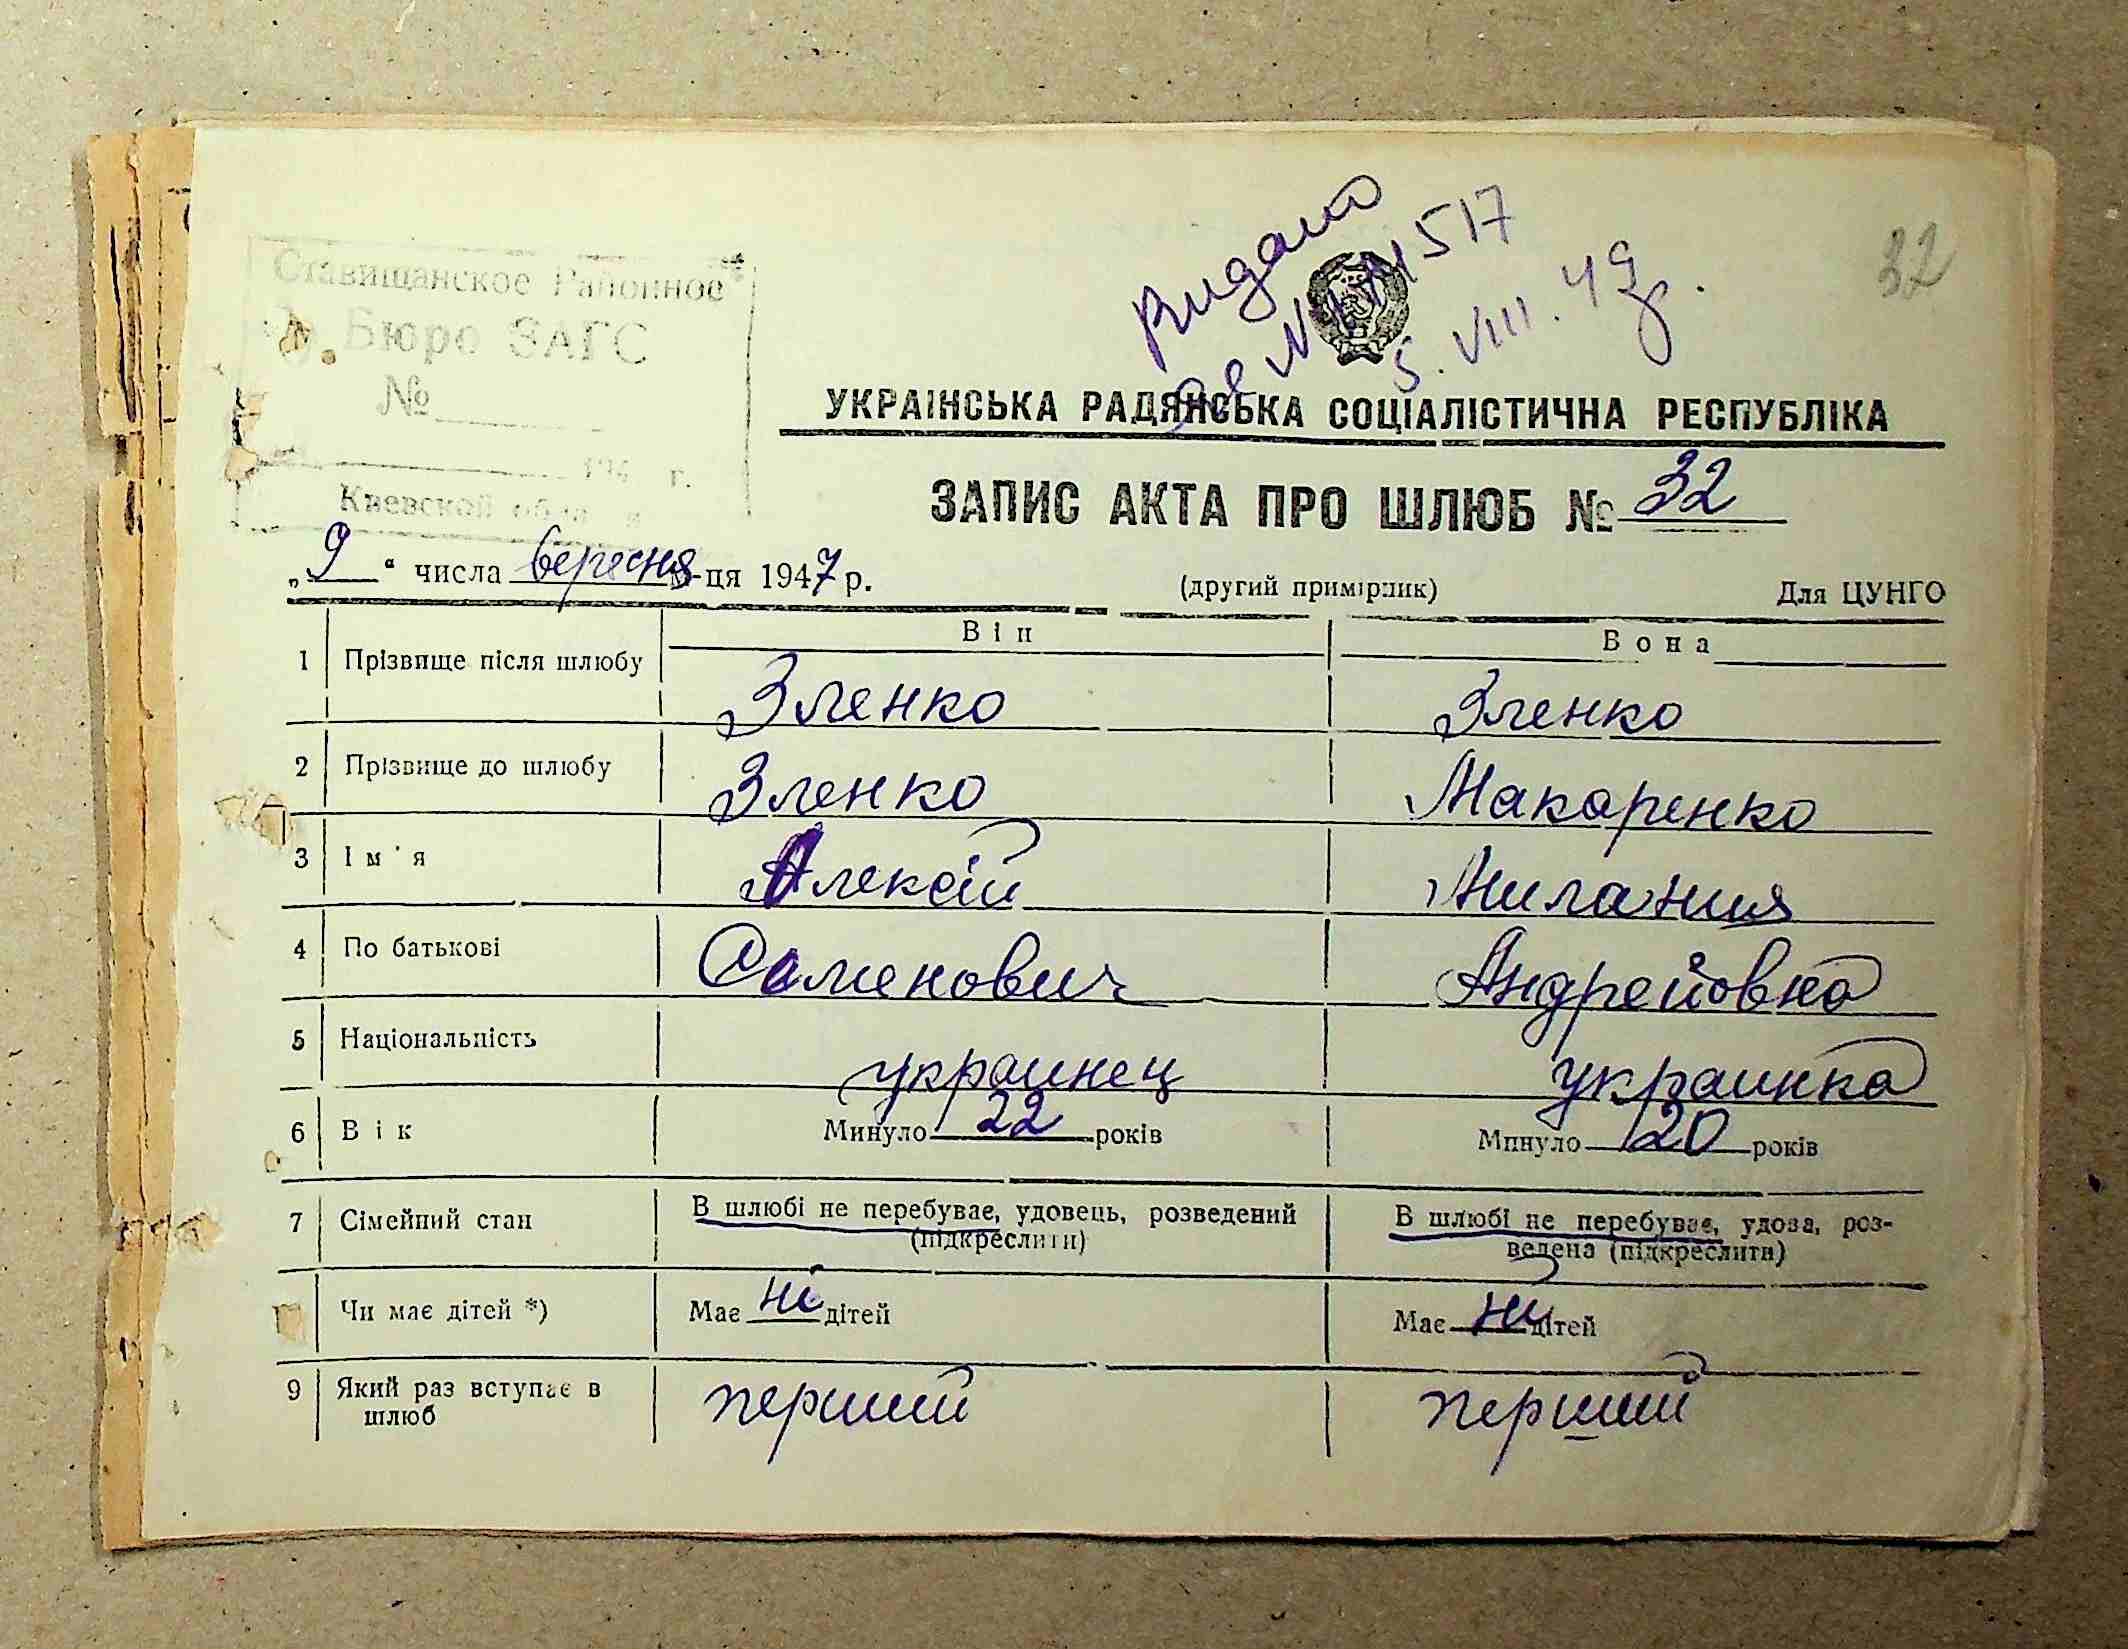 Ставищанское Районное
Бюро ЗАГС
№
194 г.
Киевской
Видано
№ 517
5. VIII. 49 р.
32
УКРАІНСЬКА РАДЯНСЬКА СОЦІАЛІСТИЧНА РЕСПУБЛІКА
ЗАПИС АКТА ПРО ШЛЮБ № 32
„9“ числа вересня м-ця 1947 р. (другий примірник) Для ЦУНГО
Він Вона
1 Прізвище після шлюбу Зленко Зленко
2 Прізвище до шлюбу Зленко Макаренко
3 Ім'я Алексій Милания
4 По батькові Семенович Андрейовна
5 Національність украинец украинка
6 Вік Минуло 22 років Минуло 20 років
7 Сімейний стан В шлюбі не перебуває, удовець, розведений (підкреслити) В шлюбі не перебуває, удова, роз-
ведена (підкреслити)
Чи має дітей *) Має ні дітей Має ні дітей
9 Який раз вступає в перший перший
шлюб